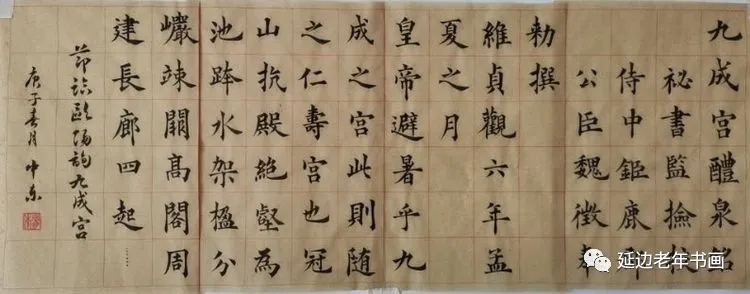 九成宫醴泉銘
祕書監撿校
侍中鉅鹿郡
公臣魏徵奉
勑撰
維貞觀六年孟
夏之月
皇帝避暑乎九
成之宫此則随
之仁壽宫也冠
山抗殿絶壑為
池跨水架楹分
巖竦闕髙閣周
建長廊四起……
節臨歐陽詢九成宫
庚子春月中东
延边老年书画